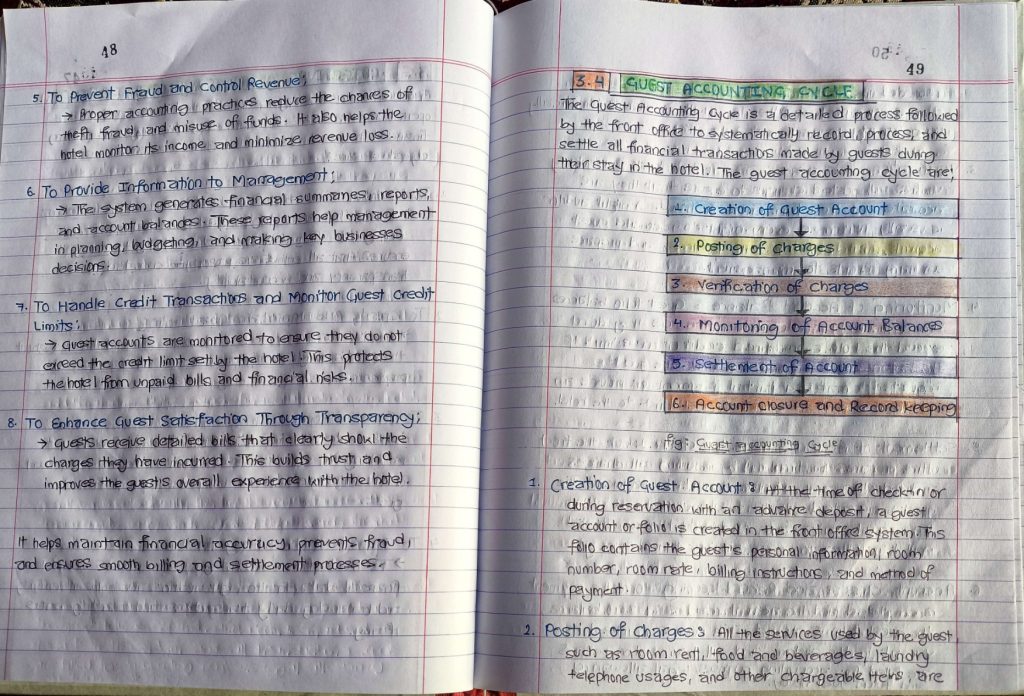 48
5. To Prevent Fraud and Control Revenue;
→ Proper accounting practices reduce the chances of
theft, fraud, and misuse of funds. It also helps the
hotel monitor its income and minimize revenue loss.
6. To Provide Information to Management;
→ The system generates financial summaries, reports,
and account balances. These reports help management
in planning, budgeting, and making key businesses
decisions.
7. To Handle Credit Transactions and Monitor Guest Credit
Limits;
→ Guest accounts are monitored to ensure they do not
exceed the credit limit set by the hotel. This protects
the hotel from unpaid bills and financial risks.
8. To Enhance Guest Satisfaction Through Transparency;
→ Guests receive detailed bills that clearly show the
charges they have incurred. This builds trust and
improves the guest's overall experience with the hotel.
It helps maintain financial accuracy, prevents fraud,
and ensures smooth billing and settlement processes.
49
3.4 GUEST ACCOUNTING CYCLE
The Guest Accounting Cycle is a detailed process followed
by the front office to systematically record, process, and
settle all financial transactions made by guests during
their stay in the hotel. The guest accounting cycle are;
1. Creation of Guest Account
2. Posting of charges
3. Verification of charges
4. Monitoring of Account Balances
5. Settlement of Account
6. Account closure and Record keeping
fig: Guest accounting Cycle
1. Creation of Guest Account: At the time of check-in or
during reservation with an advance deposit, a guest
account or folio is created in the front office system. This
folio contains the guest's personal information, room
number, room rate, billing instructions, and method of
payment.
2. Posting of Charges: All the services used by the guest
such as room rent, food and beverages, laundry
telephone usages, and other chargeable items, are